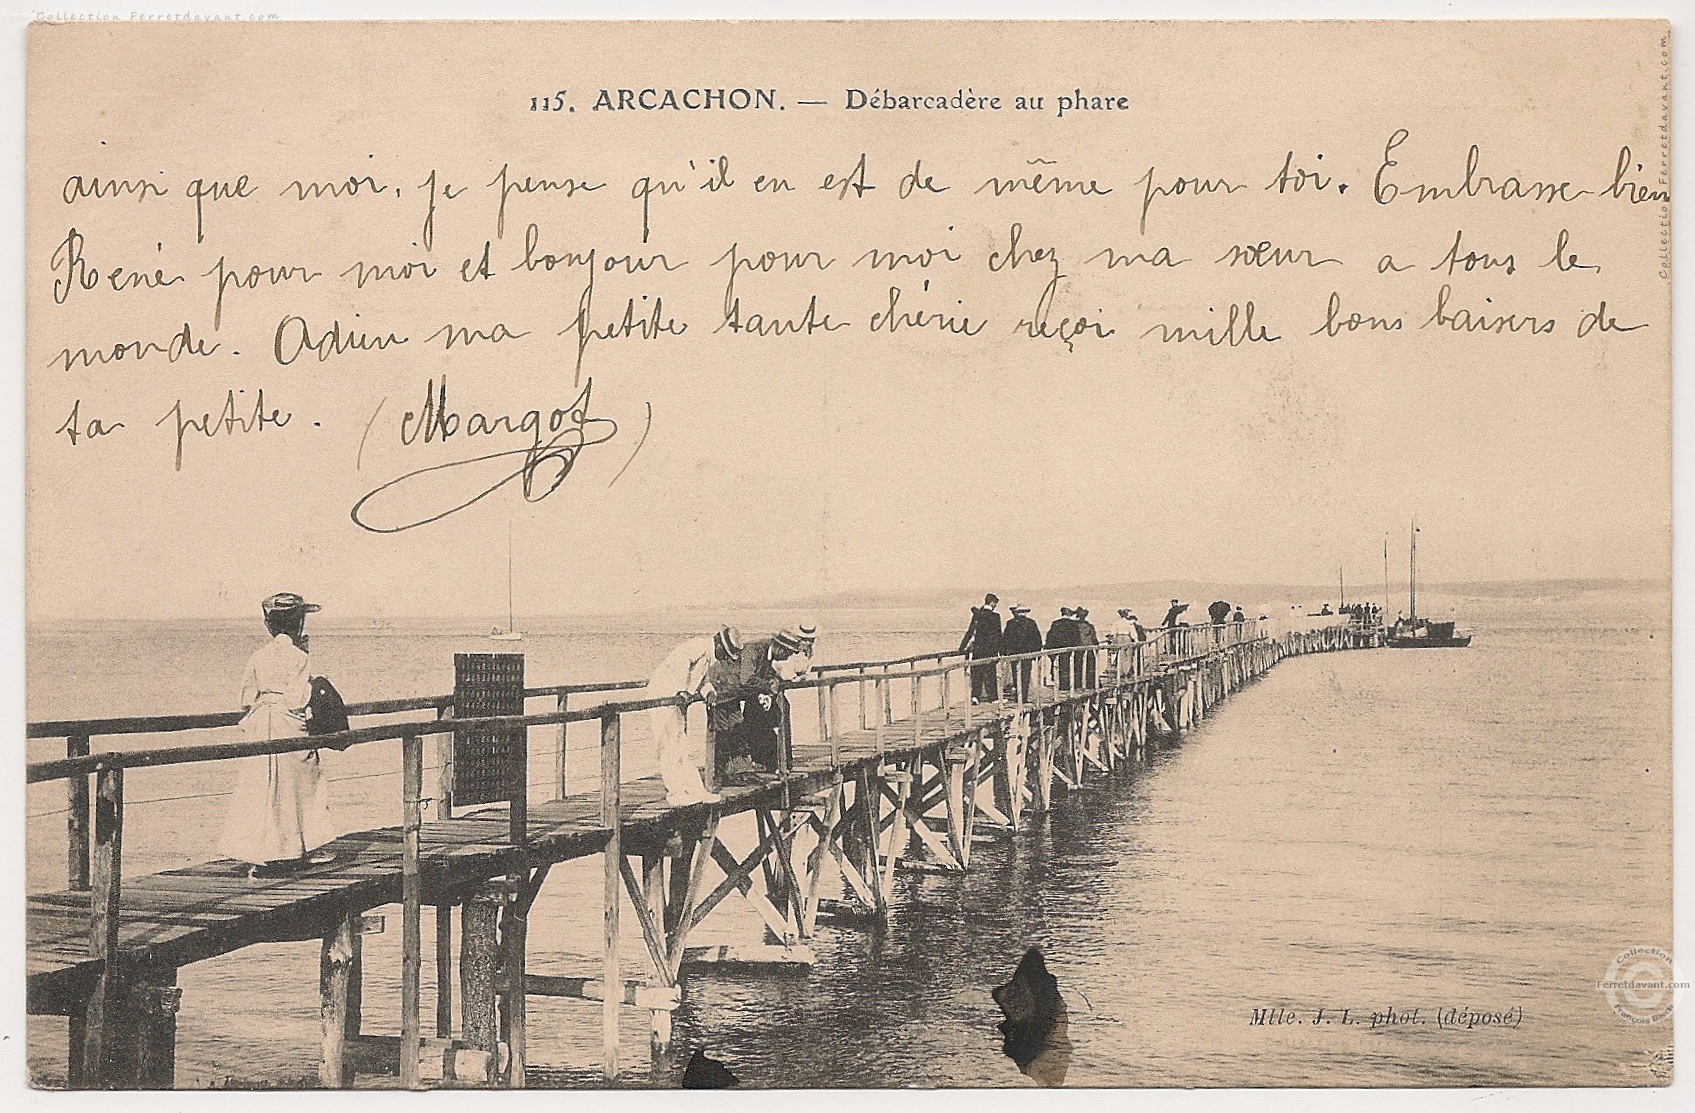 Collection Ferretdavant.com
115. ARCACHON. — Débarcadère au phare
ainsi que moi, je pense qu'il en est de même pour toi. Embrasse bien
René pour moi et bonjour pour moi chez ma sœur a tous le
monde. Adieu ma petite tante chérie reçoi mille bons baisers de
ta petite. (Margot)
Collection Ferretdavant.com
Collection
Ferretdavant.com
Mlle. J. L. phot. (déposé)